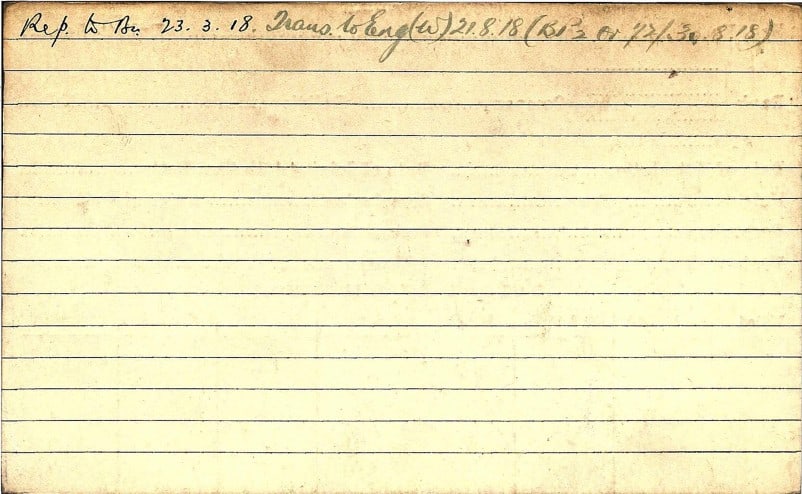 Rep. to Bn. 23.3.18. Trans. to Eng (W) 21.8.18 (Bn 2 or 72/3.8.18)